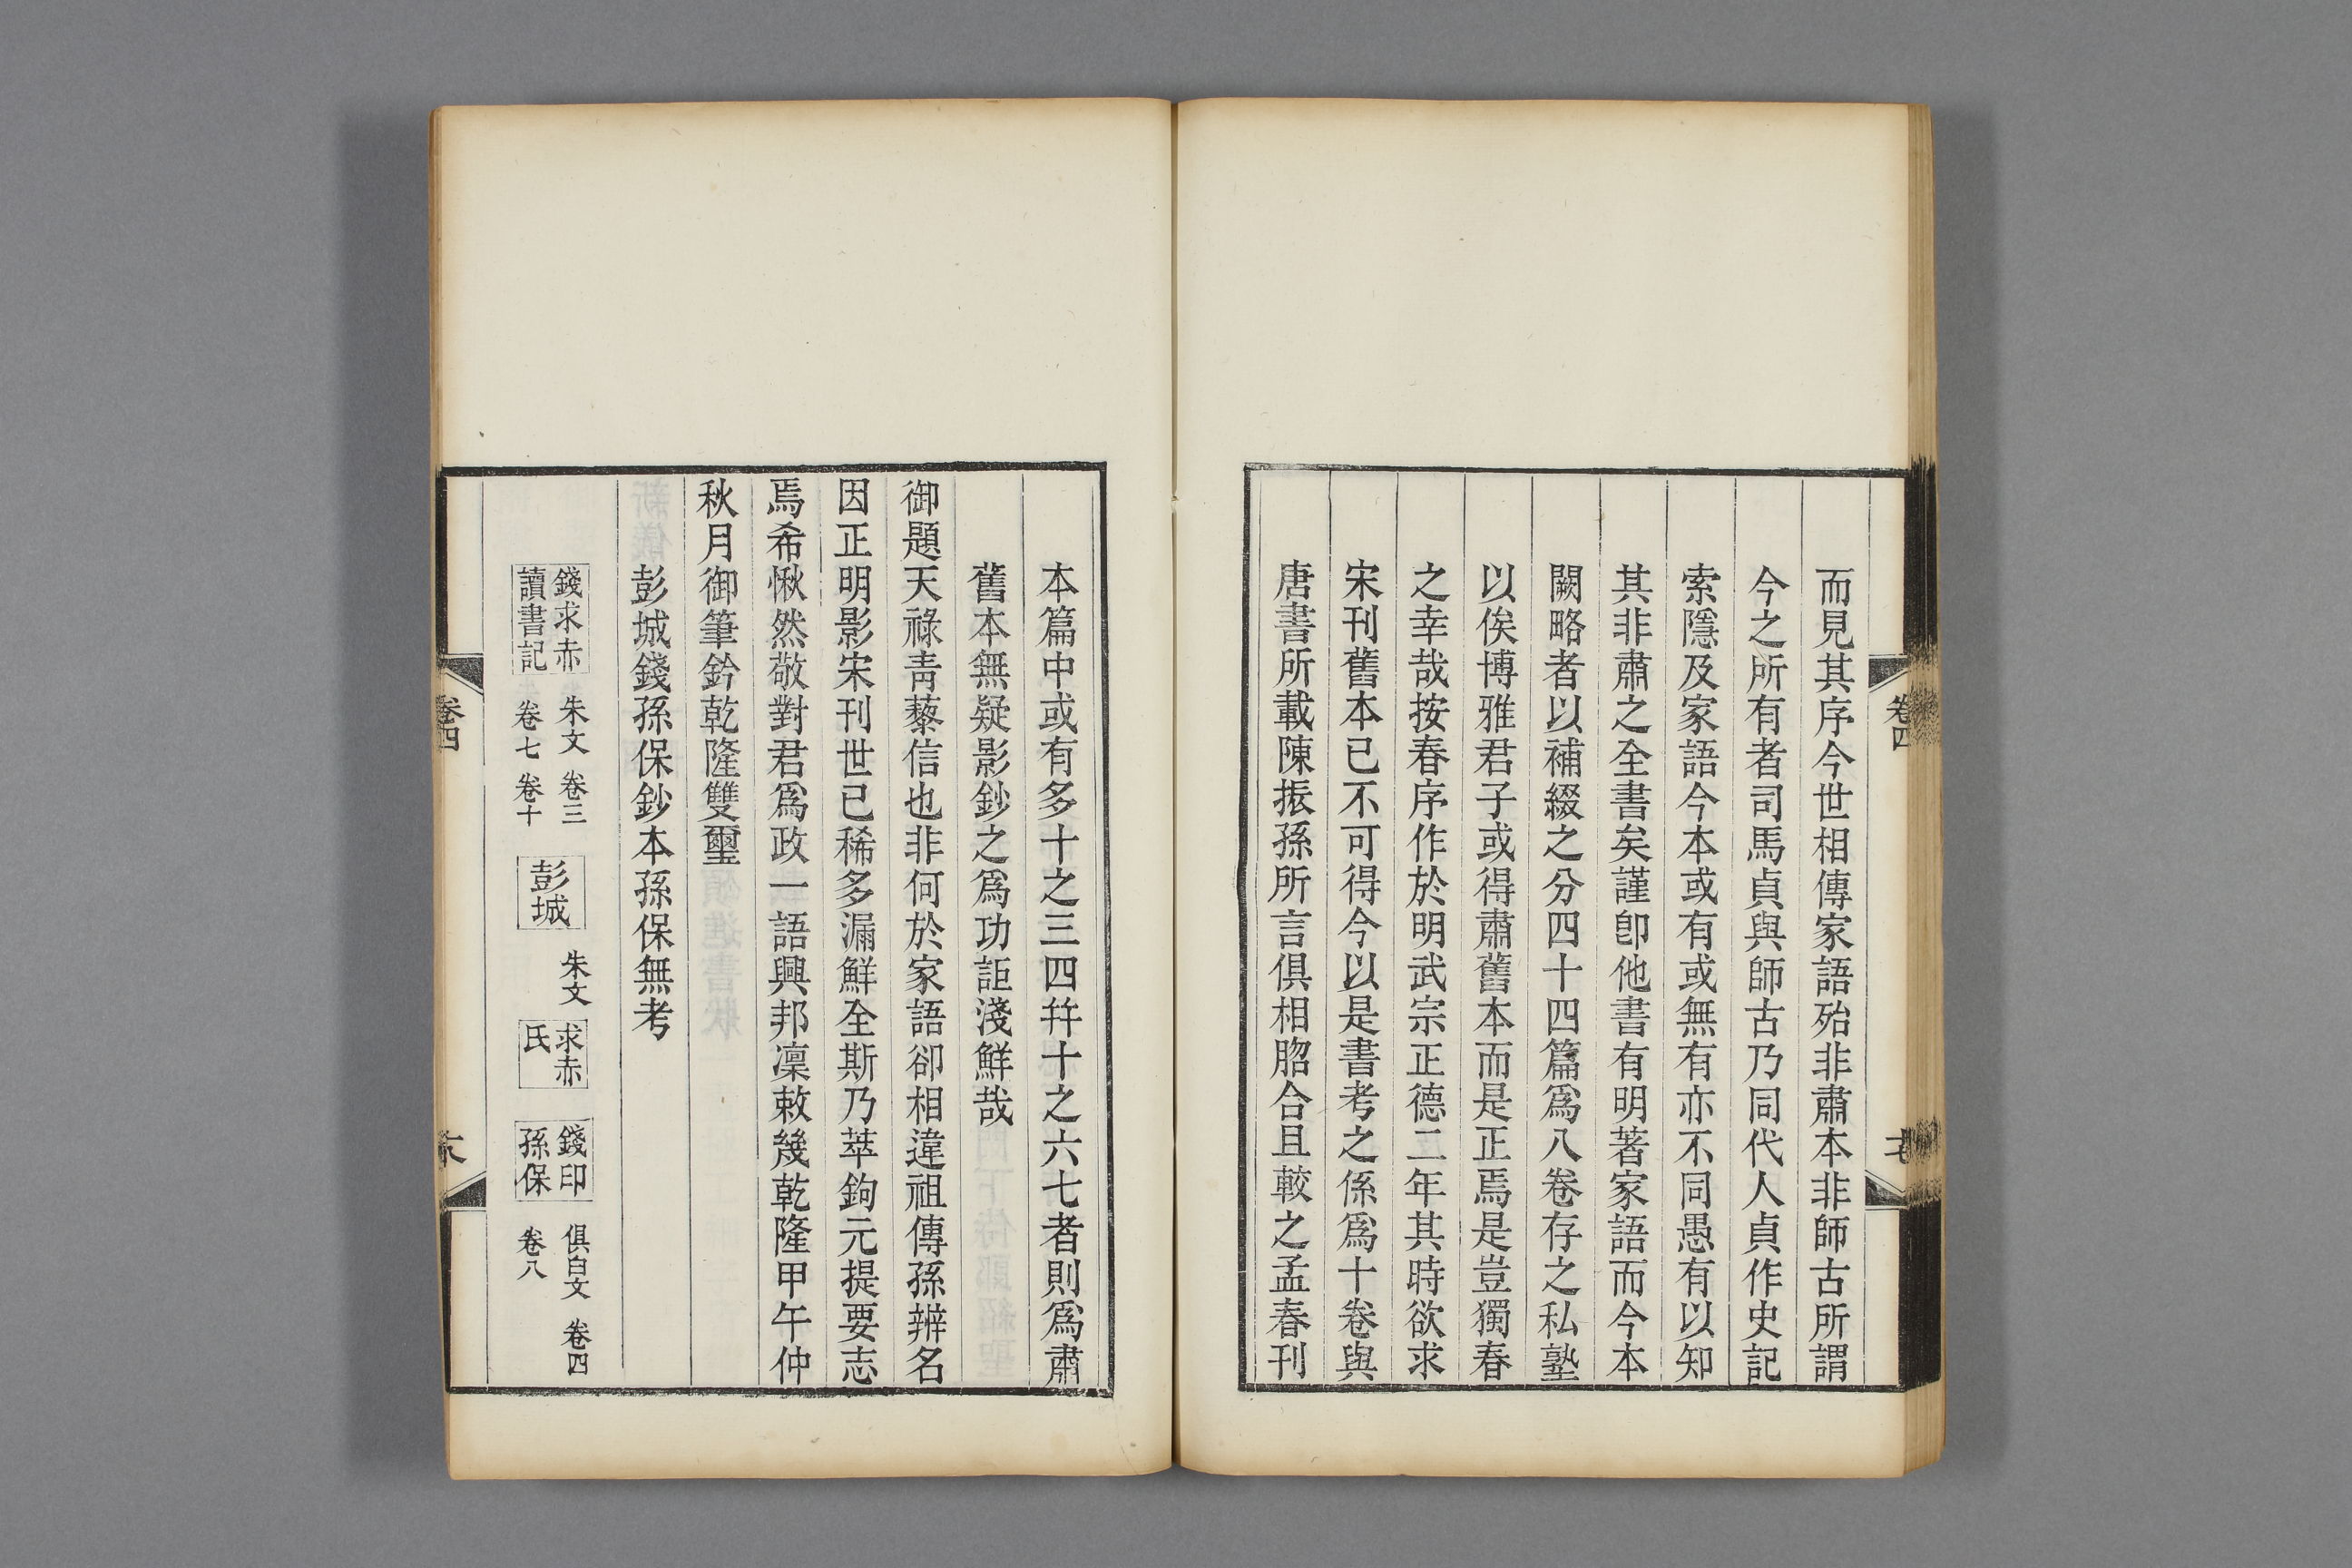 而見其序今世相傳家語殆非肅本非師古所謂
今之所有者司馬貞與師古乃同代人貞作史記
索隱及家語今本或有或無有亦不同愚有以知
其非肅之全書矣謹卽他書有明著家語而今本
闕略者以補綴之分四十四篇爲八卷存之私塾
以俟博雅君子或得肅舊本而是正焉是豈獨春
之幸哉按春序作於明武宗正德二年其時欲求
宋刊舊本已不可得今以是書考之係爲十卷與
唐書所載陳振孫所言俱相脗合且較之孟春刊
本篇中或有多十之三四幷十之六七者則爲肅
舊本無疑影鈔之爲功詎淺鮮哉
御題天祿靑藜信也非何於家語卻相違祖傳孫辨名
因正明影宋刊世已稀多漏鮮全斯乃萃鉤元提要志
焉希愀然敬對君爲政一語興邦凜敕幾乾隆甲午仲
秋月御筆鈐乾隆雙璽
彭城錢孫保鈔本孫保無考
錢求赤讀書記 朱文 卷三 卷七 卷十 彭城 朱文 求赤氏 錢孫保印 俱白文 卷四 卷八
卷四
卷四